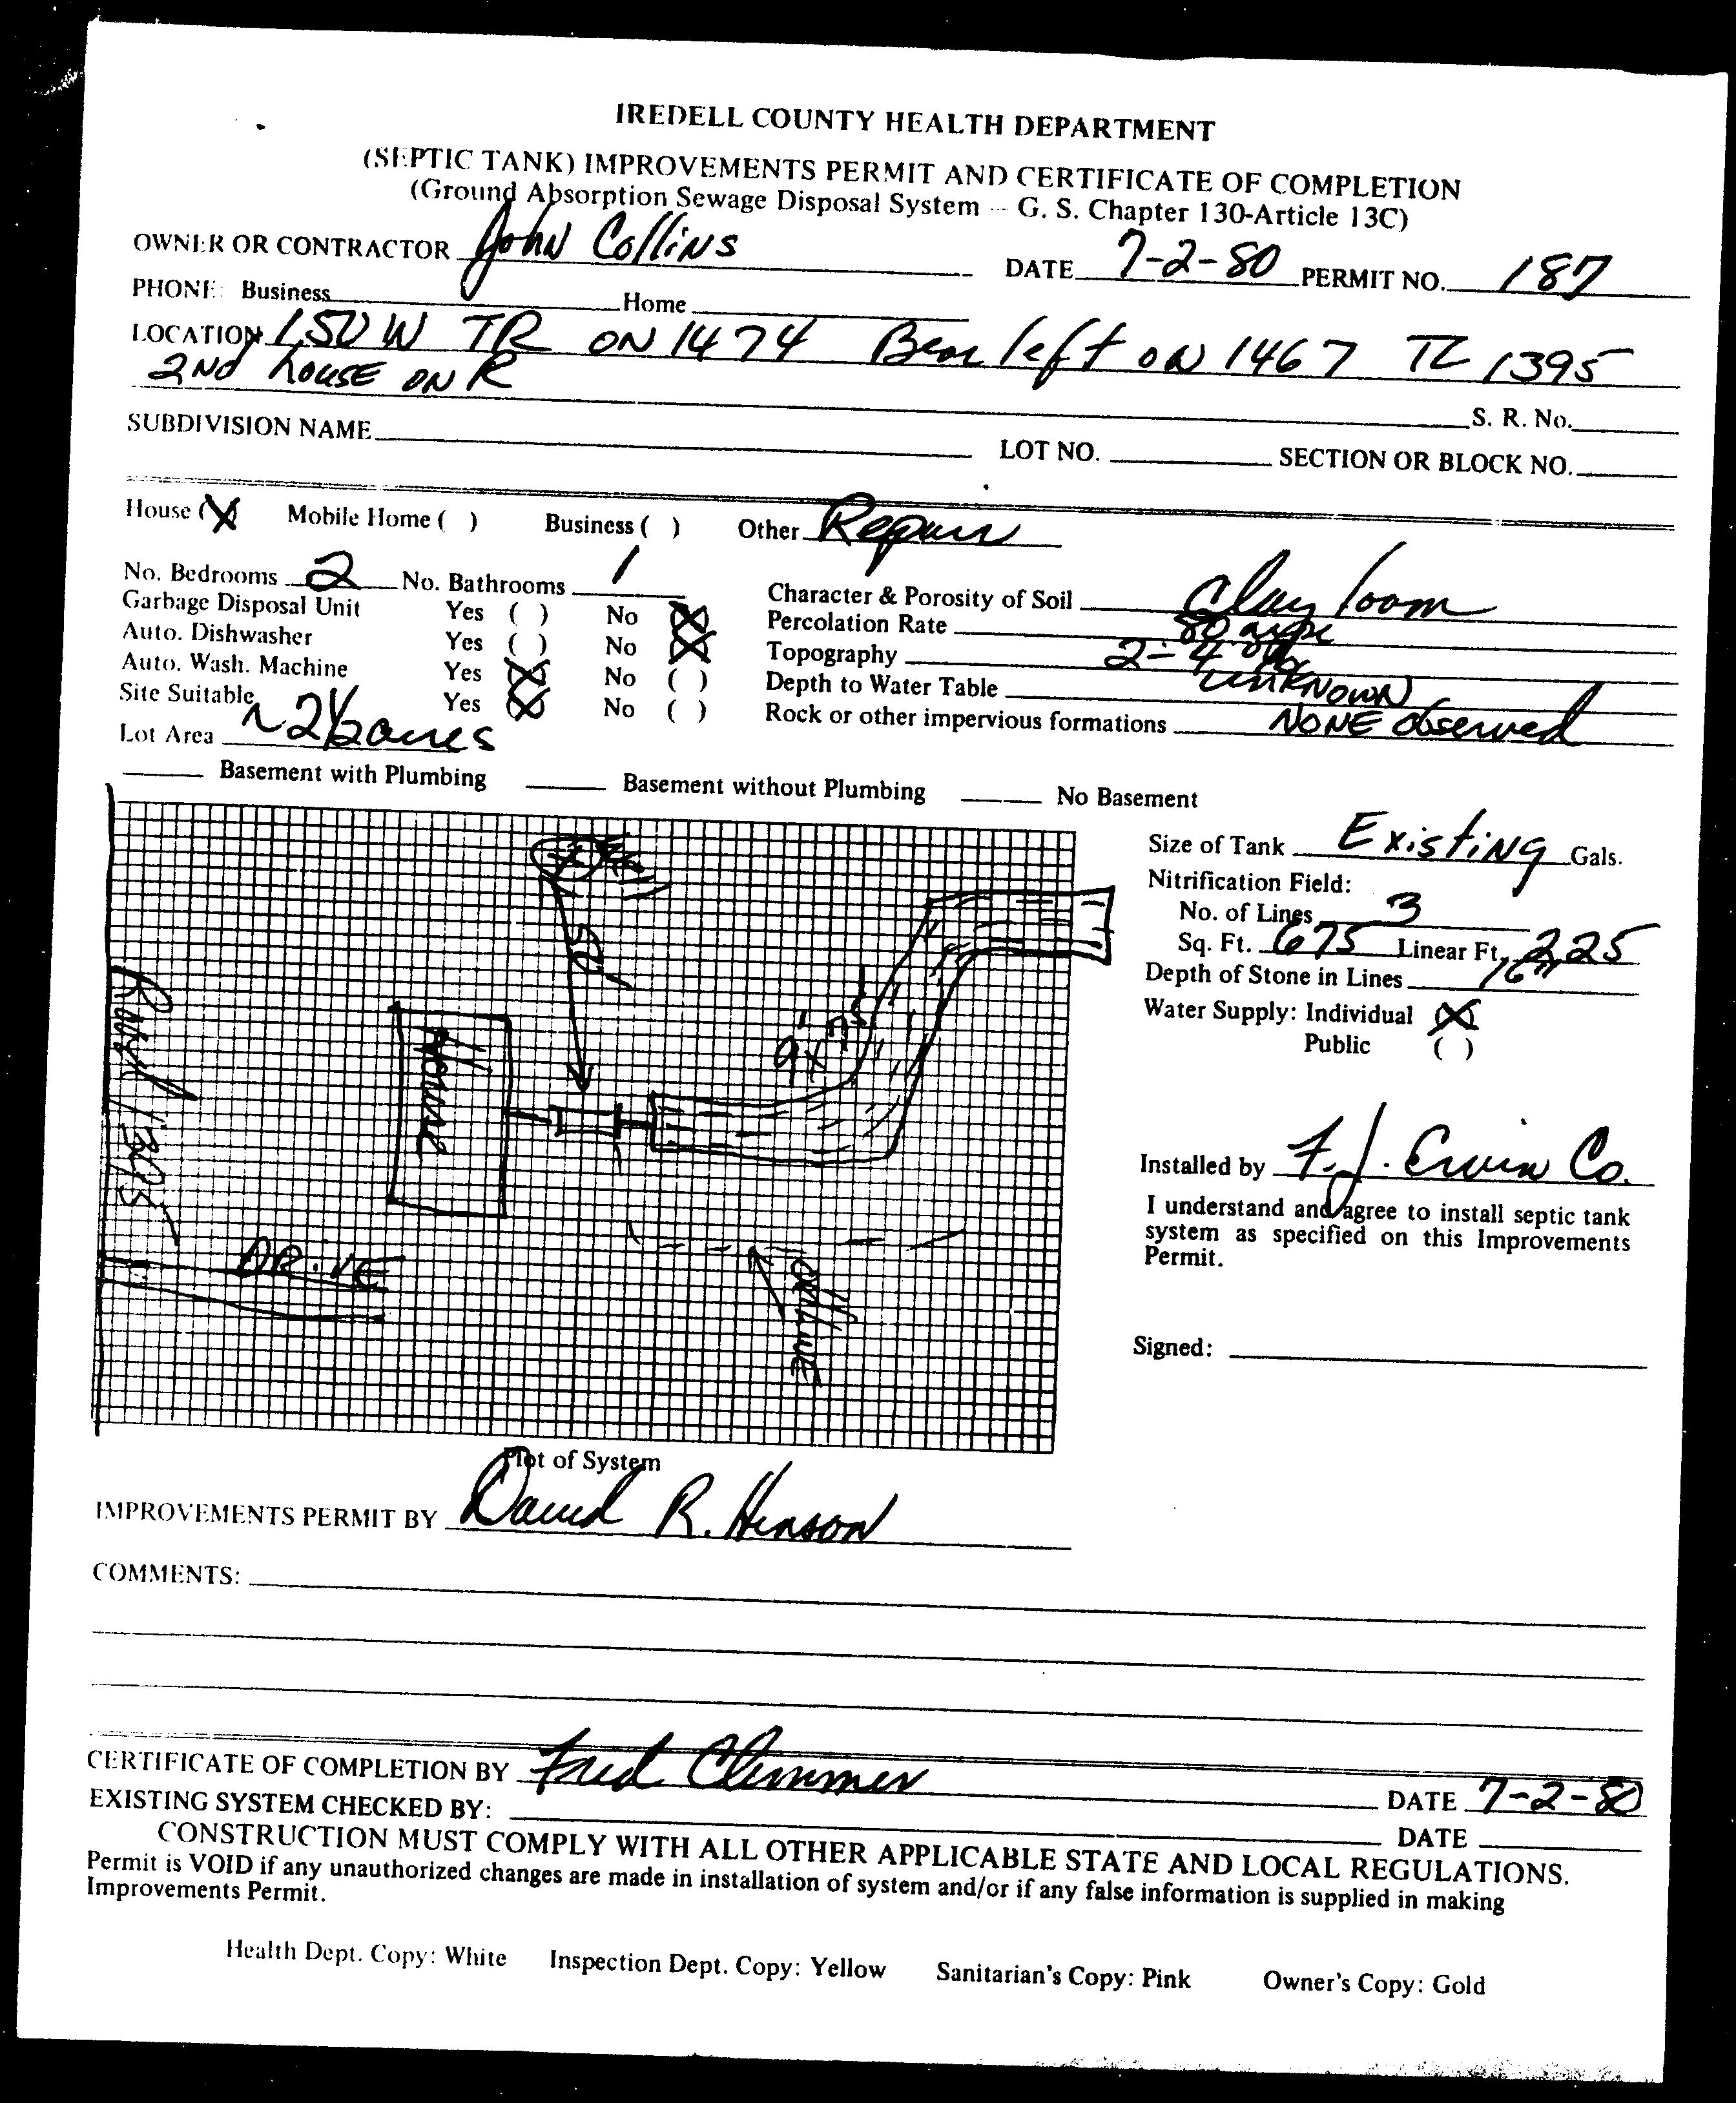 IREDELL COUNTY HEALTH DEPARTMENT
(SEPTIC TANK) IMPROVEMENTS PERMIT AND CERTIFICATE OF COMPLETION
(Ground Absorption Sewage Disposal System — G. S. Chapter 130-Article 13C)
OWNER OR CONTRACTOR John Collins DATE 7-2-80 PERMIT NO. 187
PHONE: Business Home
LOCATION 150 W TR ON 1474 Bear left on 1467 TL 1395
2nd house on R
S. R. No.
SUBDIVISION NAME LOT NO. SECTION OR BLOCK NO.
House (X) Mobile Home ( ) Business ( ) Other Repair
No. Bedrooms 2 No. Bathrooms 1
Garbage Disposal Unit Yes ( ) No (X)
Auto. Dishwasher Yes ( ) No (X)
Auto. Wash. Machine Yes (X) No ( )
Site Suitable Yes (X) No ( )
Lot Area ~2 1/2 acres
Character & Porosity of Soil Clay loam
Percolation Rate 80
Topography 2-4 %
Depth to Water Table UNKNOWN
Rock or other impervious formations NONE observed
Basement with Plumbing Basement without Plumbing No Basement
50'
House
Road 1395
DRIVE
Plot of System
Size of Tank Existing Gals.
Nitrification Field:
No. of Lines 3
Sq. Ft. 675 Linear Ft. 225
Depth of Stone in Lines 16"
Water Supply: Individual (X)
Public ( )
Installed by F. J. Ervin Co.
I understand and agree to install septic tank
system as specified on this Improvements
Permit.
Signed:
IMPROVEMENTS PERMIT BY David R. Hinson
COMMENTS:
CERTIFICATE OF COMPLETION BY Fred Clemmer DATE 7-2-80
EXISTING SYSTEM CHECKED BY: DATE
CONSTRUCTION MUST COMPLY WITH ALL OTHER APPLICABLE STATE AND LOCAL REGULATIONS.
Permit is VOID if any unauthorized changes are made in installation of system and/or if any false information is supplied in making
Improvements Permit.
Health Dept. Copy: White Inspection Dept. Copy: Yellow Sanitarian's Copy: Pink Owner's Copy: Gold